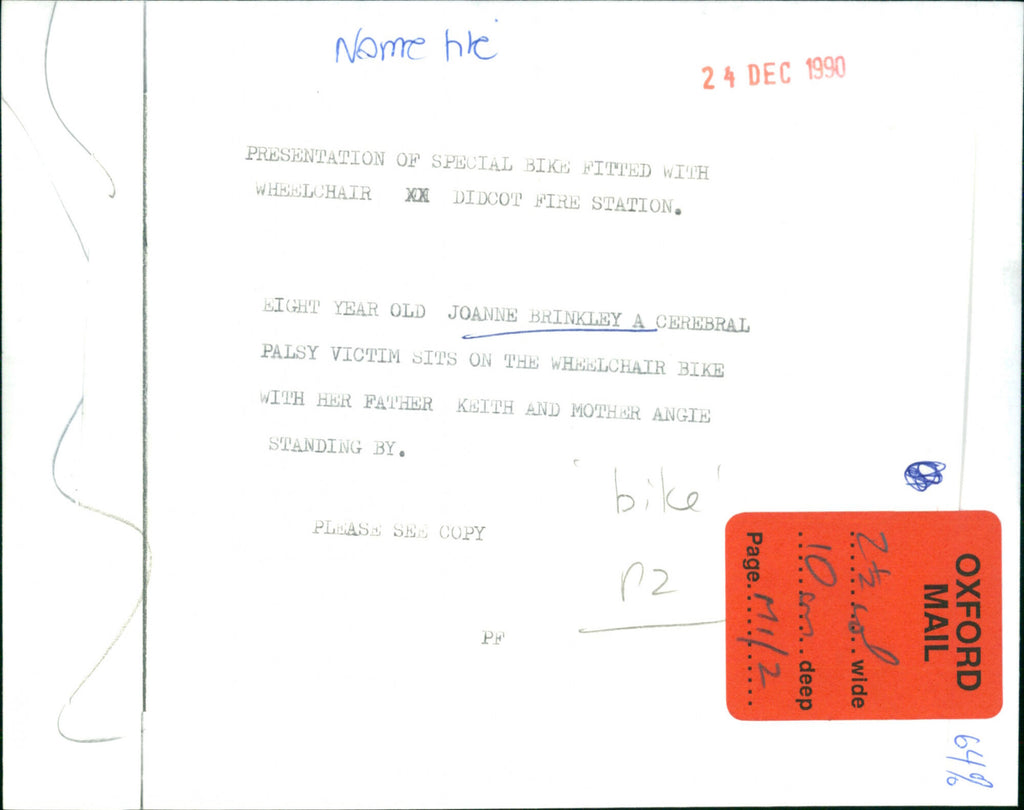 Name file
24 DEC 1990
PRESENTATION OF SPECIAL BIKE FITTED WITH
WHEELCHAIR XX DIDCOT FIRE STATION.
EIGHT YEAR OLD JOANNE BRINKLEY A CEREBRAL
PALSY VICTIM SITS ON THE WHEELCHAIR BIKE
WITH HER FATHER KEITH AND MOTHER ANGIE
STANDING BY.
'bike'
PLEASE SEE COPY
P2
PF
OXFORD
MAIL
2½ col wide
10 cm deep
Page M1/2
64%